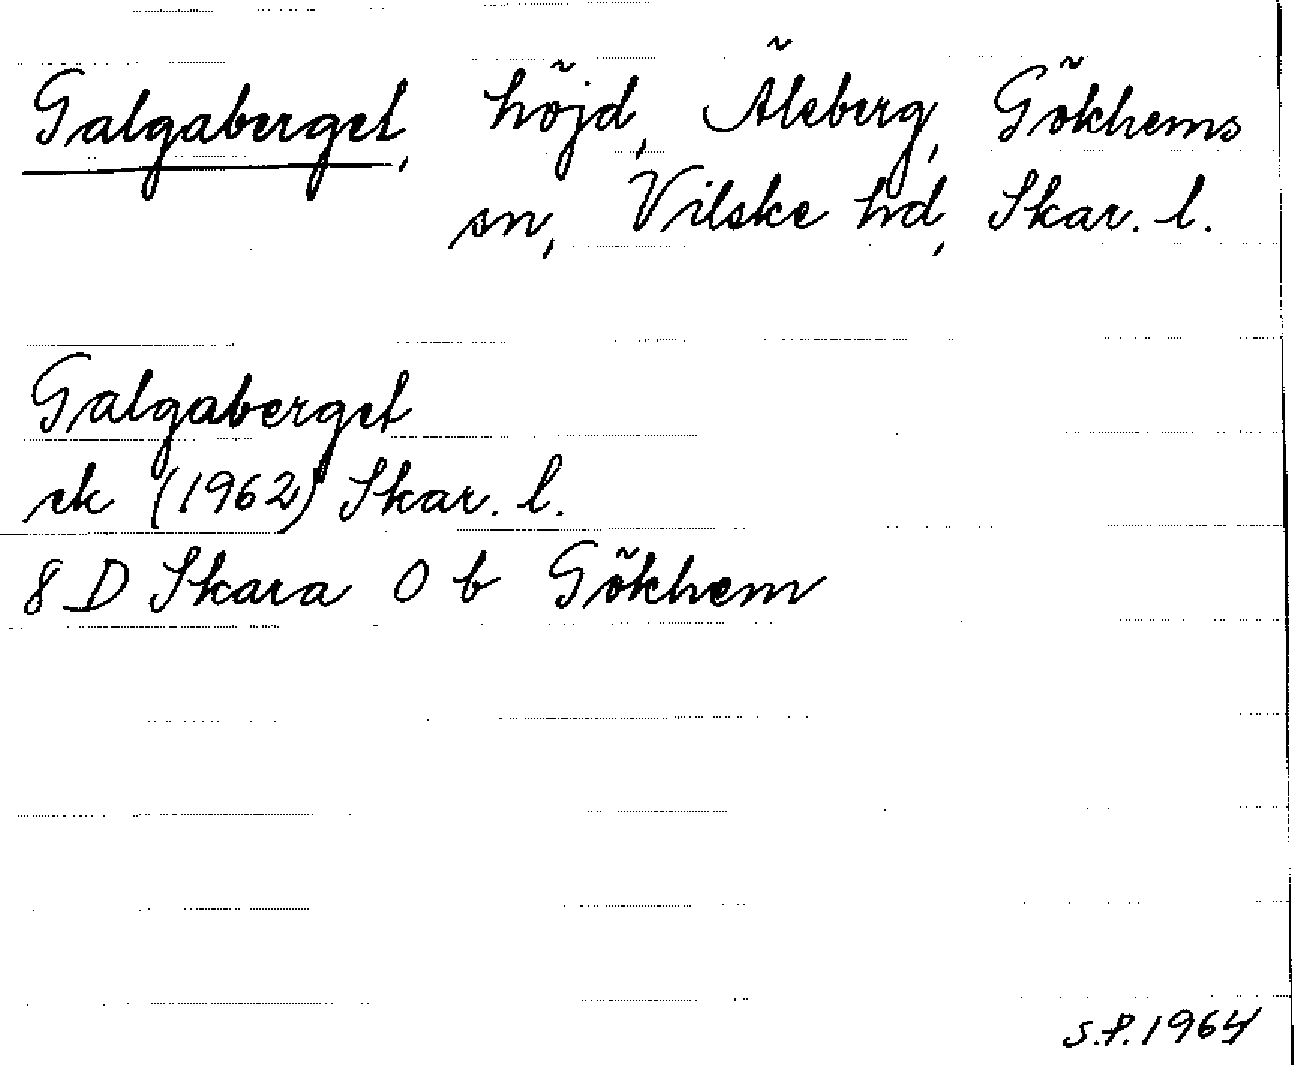 Galgaberget, höjd, Äleberg, Gökhems
sn, Vilske hd, Skar. l.
Galgaberget
ek (1962) Skar. l.
8 D Skara 0 b Gökhem
S.P. 1964